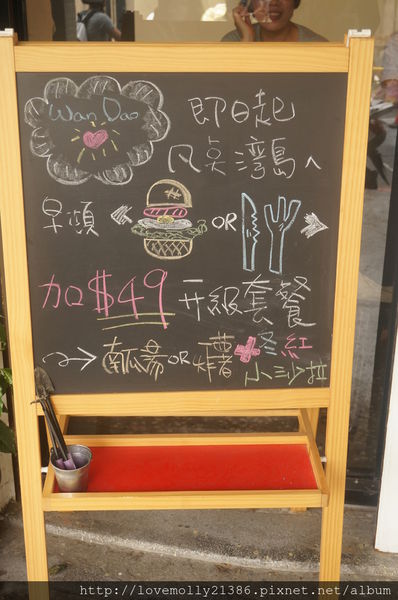 Wan Dao
即日起
凡点湾島ㄟ
早頓 OR
加$49 升級套餐
南瓜湯OR炸薯+冬紅
小沙拉
http://lovemolly21386.pixnet.net/album